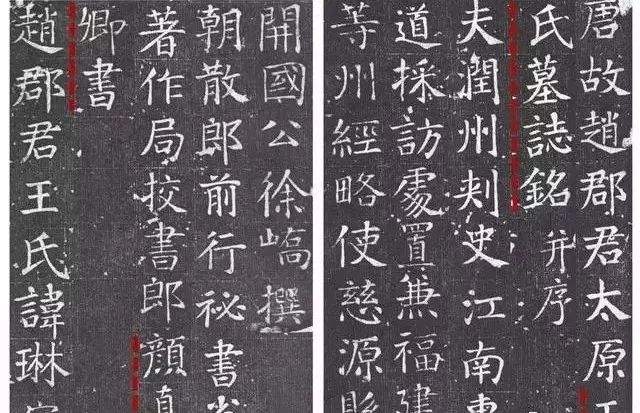 唐故趙郡君太原王
氏墓誌銘并序
夫潤州刺史江南東
道採訪處置兼福建
等州經略使慈源縣
開國公徐嶠撰
朝散郎前行祕書省
著作局挍書郎顏真
卿書
趙郡君王氏諱琳字